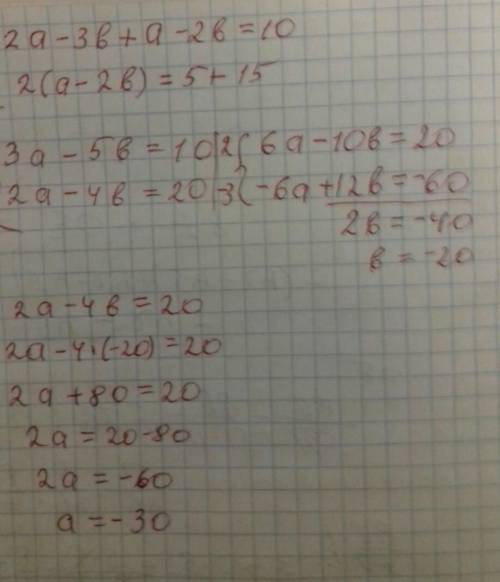 2а-3в+а-2в=10
2(а-2в)=5+15
3а-5в=10|2( 6а-10в=20
2а-4в=20|-3( -6а+12в=-60
2в=-40
в=-20
2а-4в=20
2а-4·(-20)=20
2а+80=20
2а=20-80
2а=-60
а=-30